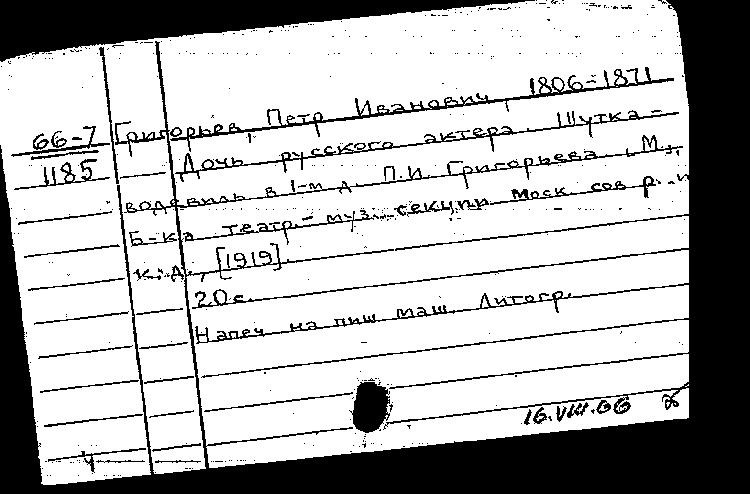 66-7
1185
Григорьев, Петр Иванович, 1806-1871
Дочь русского актера. Шутка-
водевиль в 1-м д. П.И. Григорьева, М.,
Б-ка театр.- муз. секции Моск сов р. и
к.д., [1919].
20 с.
Напеч на пиш маш. Литогр.
16.VIII.66